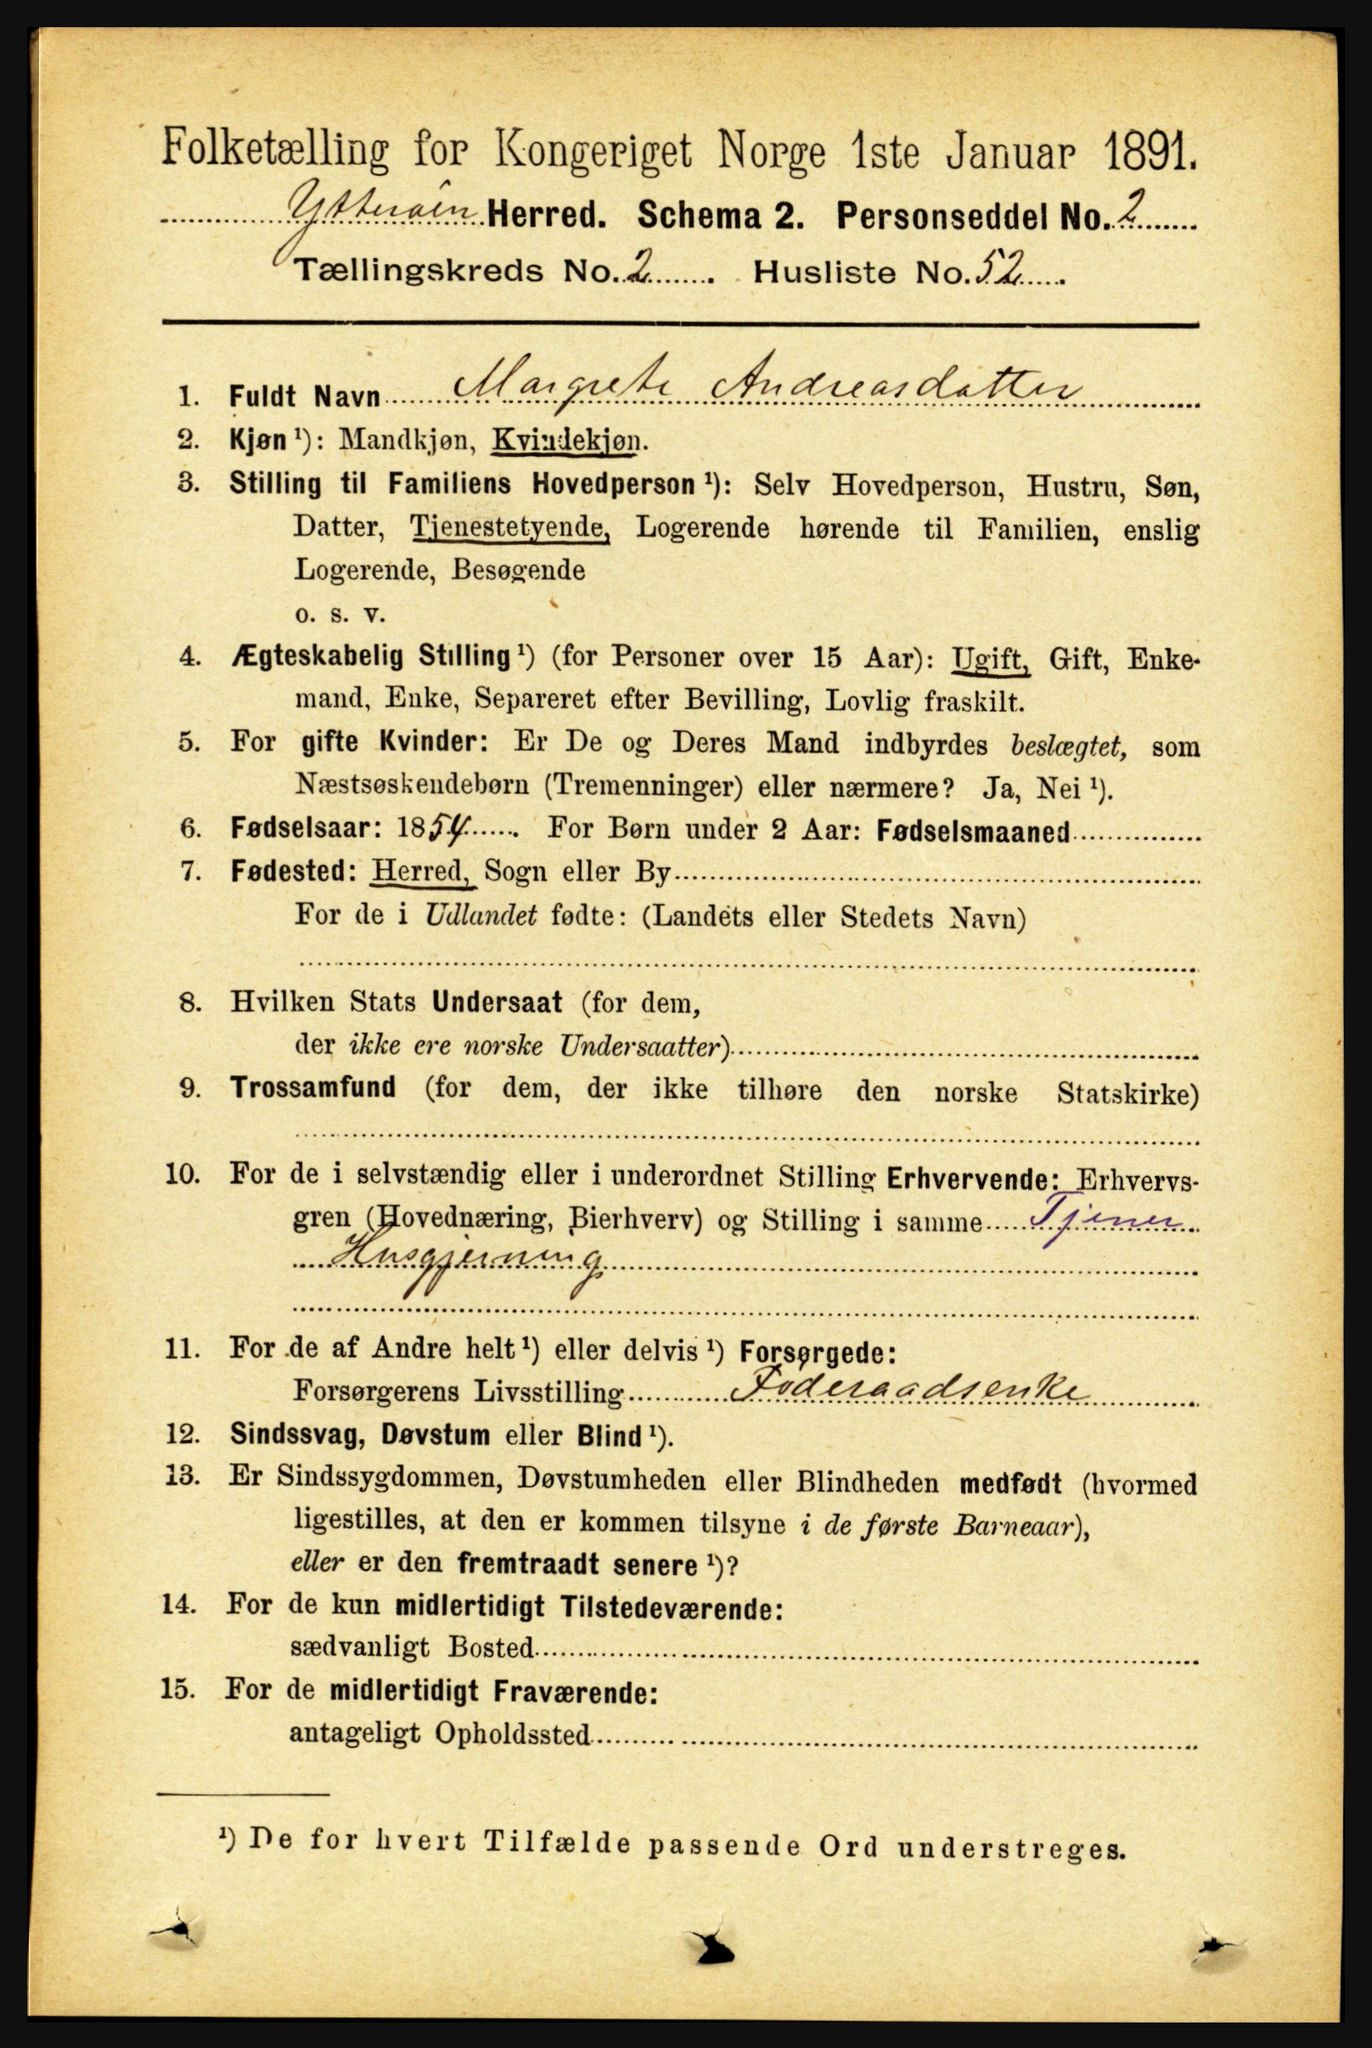 Folketælling for Kongeriget Norge 1ste Januar 1891.
Ytterøen Herred. Schema 2. Personseddel No. 2
Tællingskreds No. 2. Husliste No. 52.
1. Fuldt Navn Margrete Andreasdatter
2. Kjøn ¹): Mandkjøn, Kvindekjøn.
3. Stilling til Familiens Hovedperson ¹): Selv Hovedperson, Hustru, Søn,
Datter, Tjenestetyende, Logerende hørende til Familien, enslig
Logerende, Besøgende
o. s. v.
4. Ægteskabelig Stilling ¹) (for Personer over 15 Aar): Ugift, Gift, Enke-
mand, Enke, Separeret efter Bevilling, Lovlig fraskilt.
5. For gifte Kvinder: Er De og Deres Mand indbyrdes beslægtet, som
Næstsøskendebørn (Tremenninger) eller nærmere? Ja, Nei ¹).
6. Fødselsaar: 1854. For Børn under 2 Aar: Fødselsmaaned
7. Fødested: Herred, Sogn eller By
For de i Udlandet fødte: (Landets eller Stedets Navn)
8. Hvilken Stats Undersaat (for dem,
der ikke ere norske Undersaatter)
9. Trossamfund (for dem, der ikke tilhøre den norske Statskirke)
10. For de i selvstændig eller i underordnet Stilling Erhvervende: Erhvervs-
gren (Hovednæring, Bierhverv) og Stilling i samme Tjener
Husgjerning
11. For de af Andre helt ¹) eller delvis ¹) Forsørgede:
Forsørgerens Livsstilling Føderaadsenke
12. Sindssvag, Døvstum eller Blind ¹).
13. Er Sindssygdommen, Døvstumheden eller Blindheden medfødt (hvormed
ligestilles, at den er kommen tilsyne i de første Barneaar),
eller er den fremtraadt senere ¹)?
14. For de kun midlertidigt Tilstedeværende:
sædvanligt Bosted
15. For de midlertidigt Fraværende:
antageligt Opholdssted
¹) De for hvert Tilfælde passende Ord understreges.